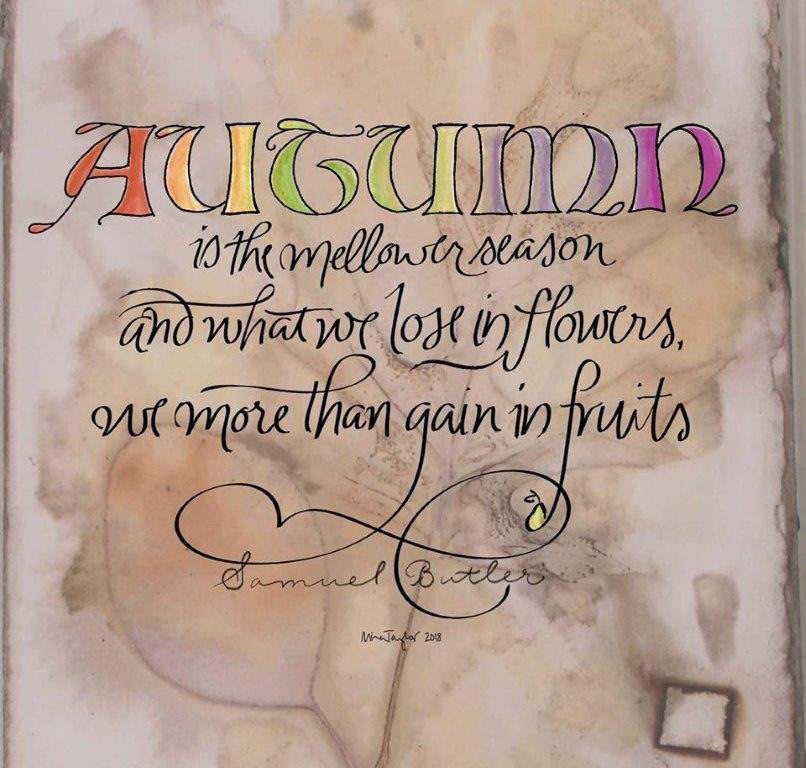 AUTUMN
is the mellower season
and what we lose in flowers,
we more than gain in fruits
Samuel Butler
Mina Taylor 2018